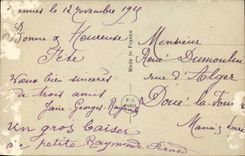 le 12 Novembre 1925
Bonne & Heureuse
Fête
Vœux bien sincères
de trois amis
Jane Georges Raymond
un gros baiser
de petite Raymonde
MADE IN FRANCE
Monsieur
René Dumoulin
rue d'Alger
Doué la Fon